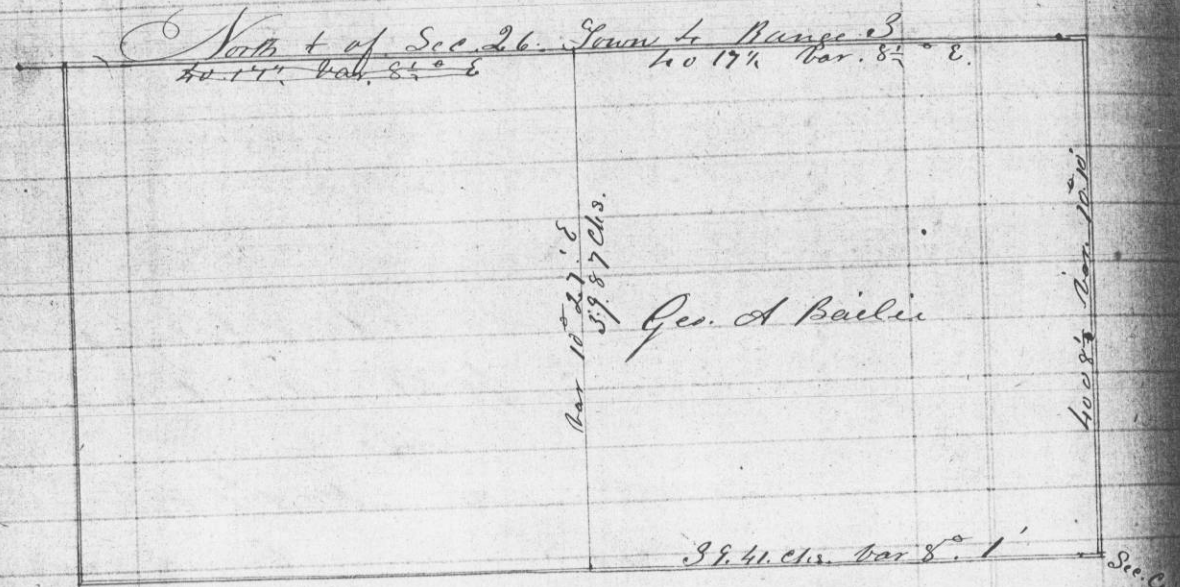 North ½ of Sec. 26. Town 4 Range 3
40 17½ Var. 8½° E
40 17½ Var. 8½° E.
Var 10° 27' E
39.87 Chs.
Geo. A Bailie
40 08½ Var. 10° 10'
39.41. Chs. Var 8°. 1'
Sec.